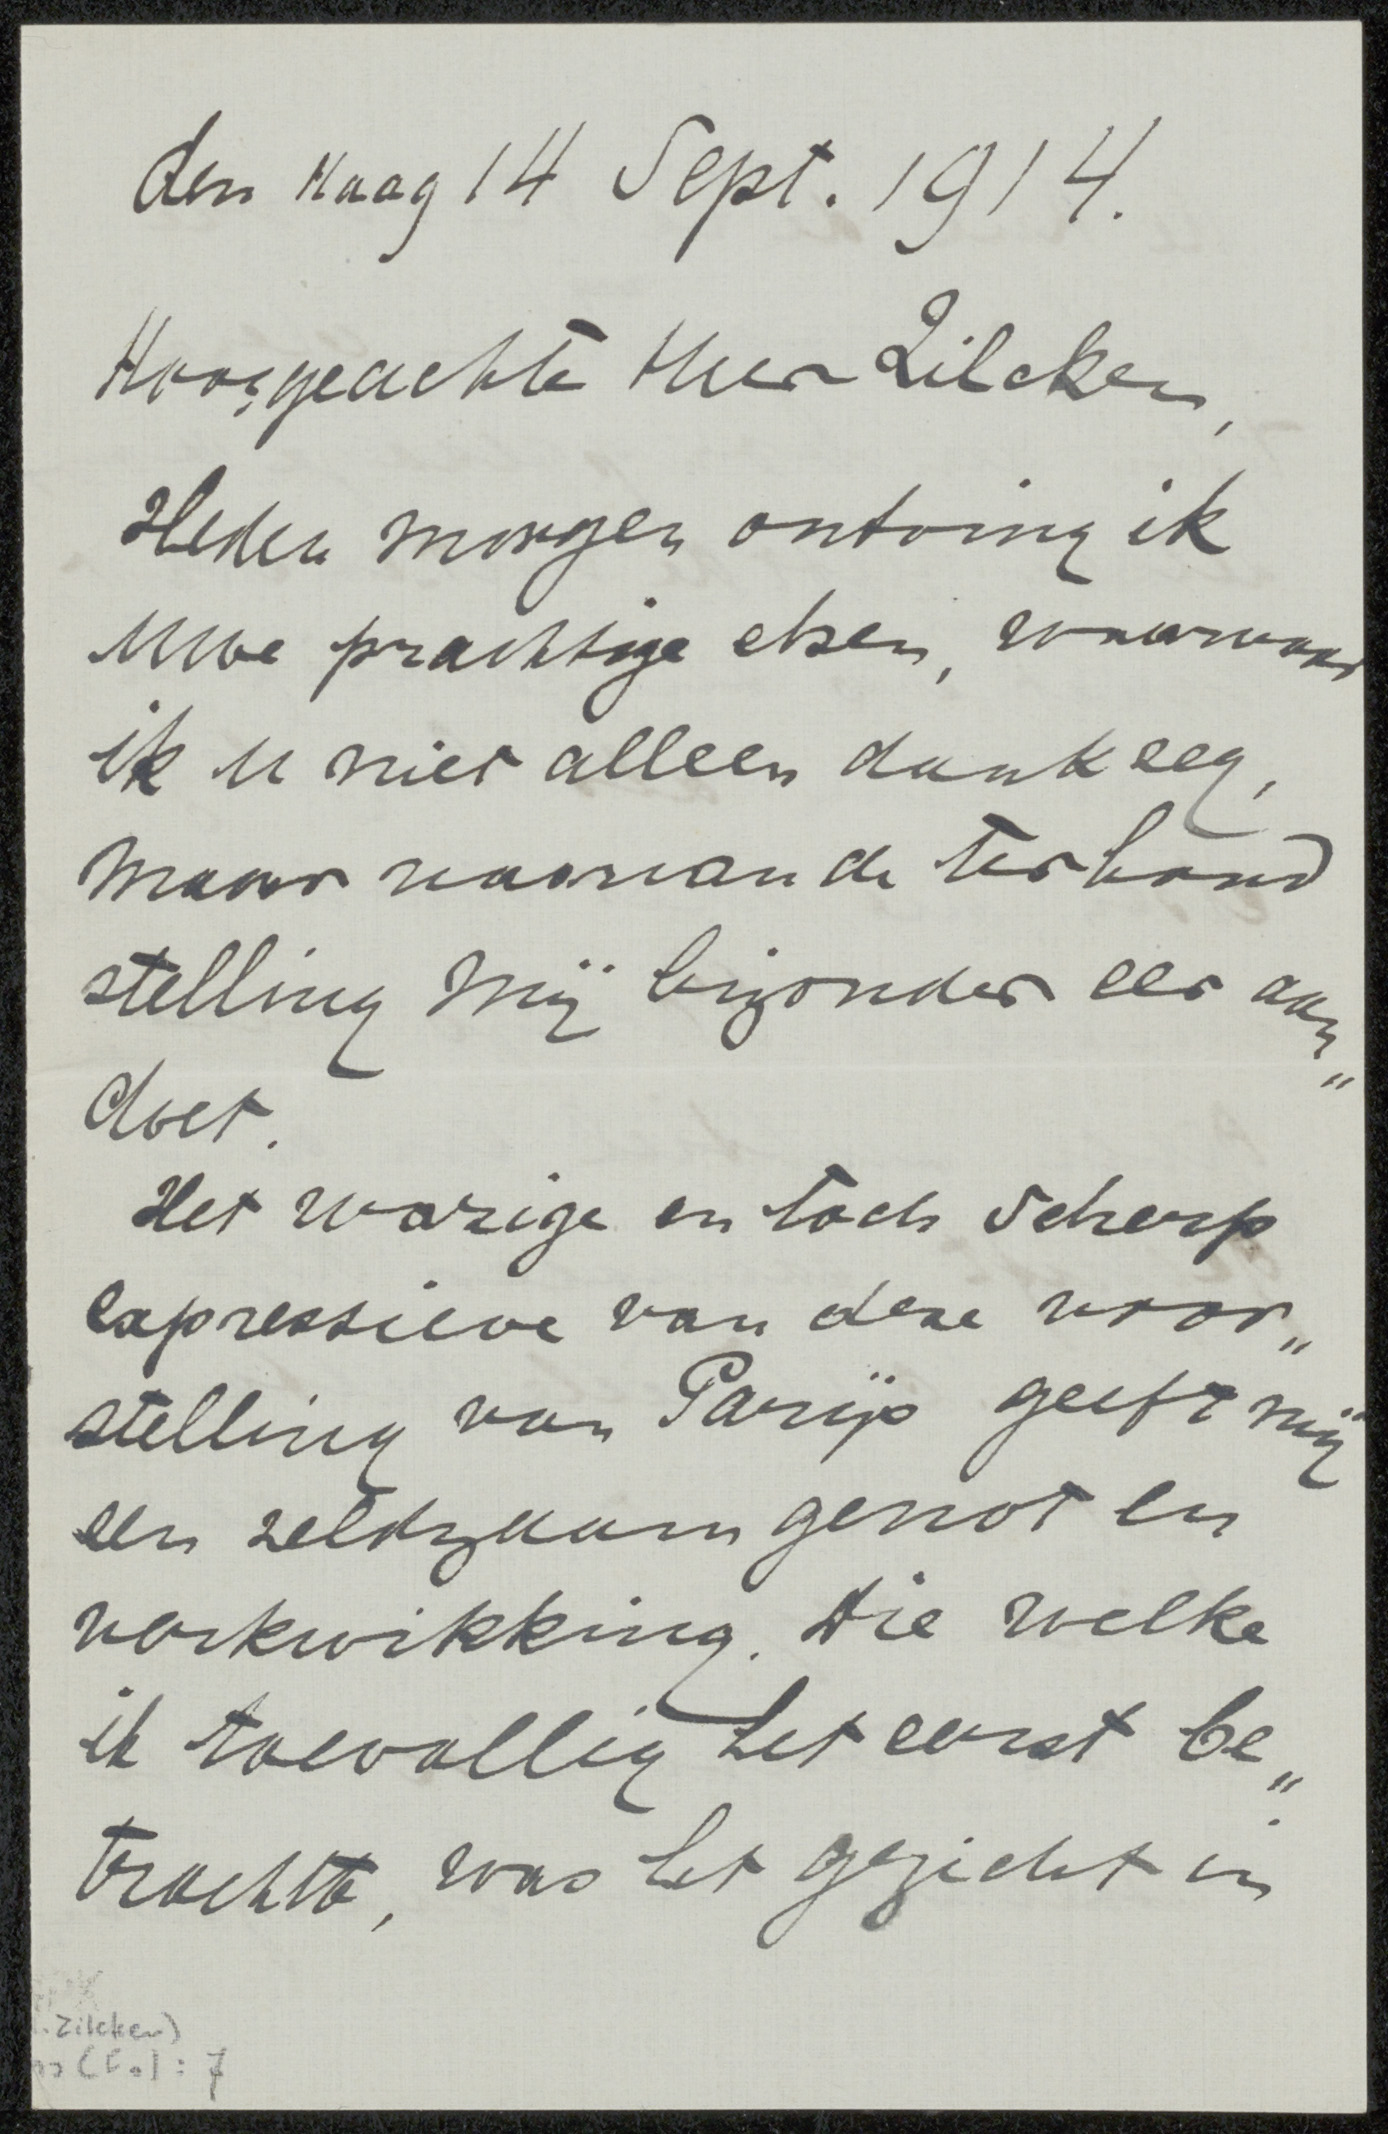 den Haag 14 Sept. 1914.
Hooggeachte Heer Zilcken,
Heden morgen ontving ik
Uwe prachtige etsen, waarvoor
ik U niet alleen dank zeg,
maar waarvan de terhand
stelling mij bizonder eer aan„
doet.
Het wazige en toch scherp
expressieve van deze voor„
stelling van Parijs geeft mij
een zeldzaam genot en
verkwikking. Die welke
ik toevallig het eerst be„
trachtte, was het gezicht in
. Zilcken)
: 7